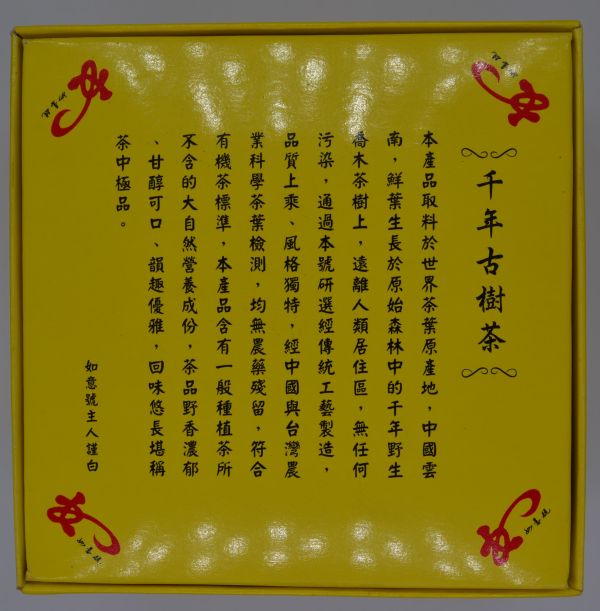 千年古樹茶
本產品取料於世界茶葉原產地，中國雲
南，鮮葉生長於原始森林中的千年野生
喬木茶樹上，遠離人類居住區，無任何
污染，通過本號研選經傳統工藝製造，
品質上乘、風格獨特，經中國與台灣農
業科學茶葉檢測，均無農藥殘留，符合
有機茶標準，本產品含有一般種植茶所
不含的大自然營養成份，茶品野香濃郁
、甘醇可口、韻趣優雅，回味悠長堪稱
茶中極品。
如意號主人謹白
如意號
如意號
如意號
如意號